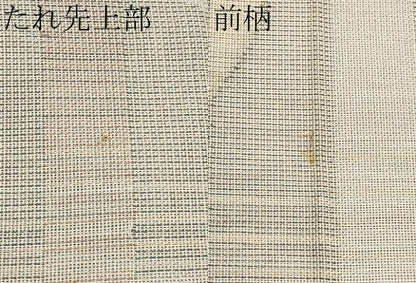 たれ先上部
前柄